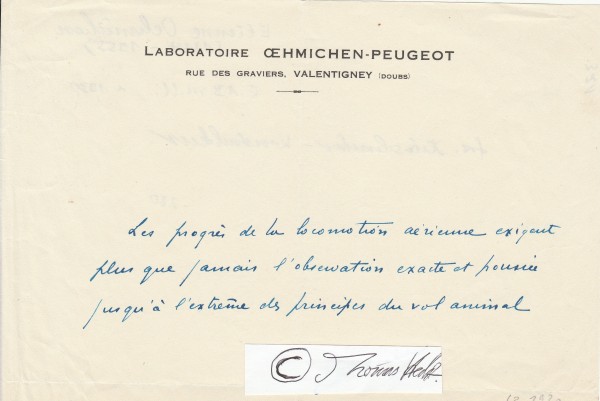 LABORATOIRE ŒHMICHEN-PEUGEOT
RUE DES GRAVIERS, VALENTIGNEY (DOUBS)
Les progrès de la locomotion aérienne exigent
plus que jamais l'observation exacte et poussée
jusqu'à l'extrême des principes du vol animal
© Thomas